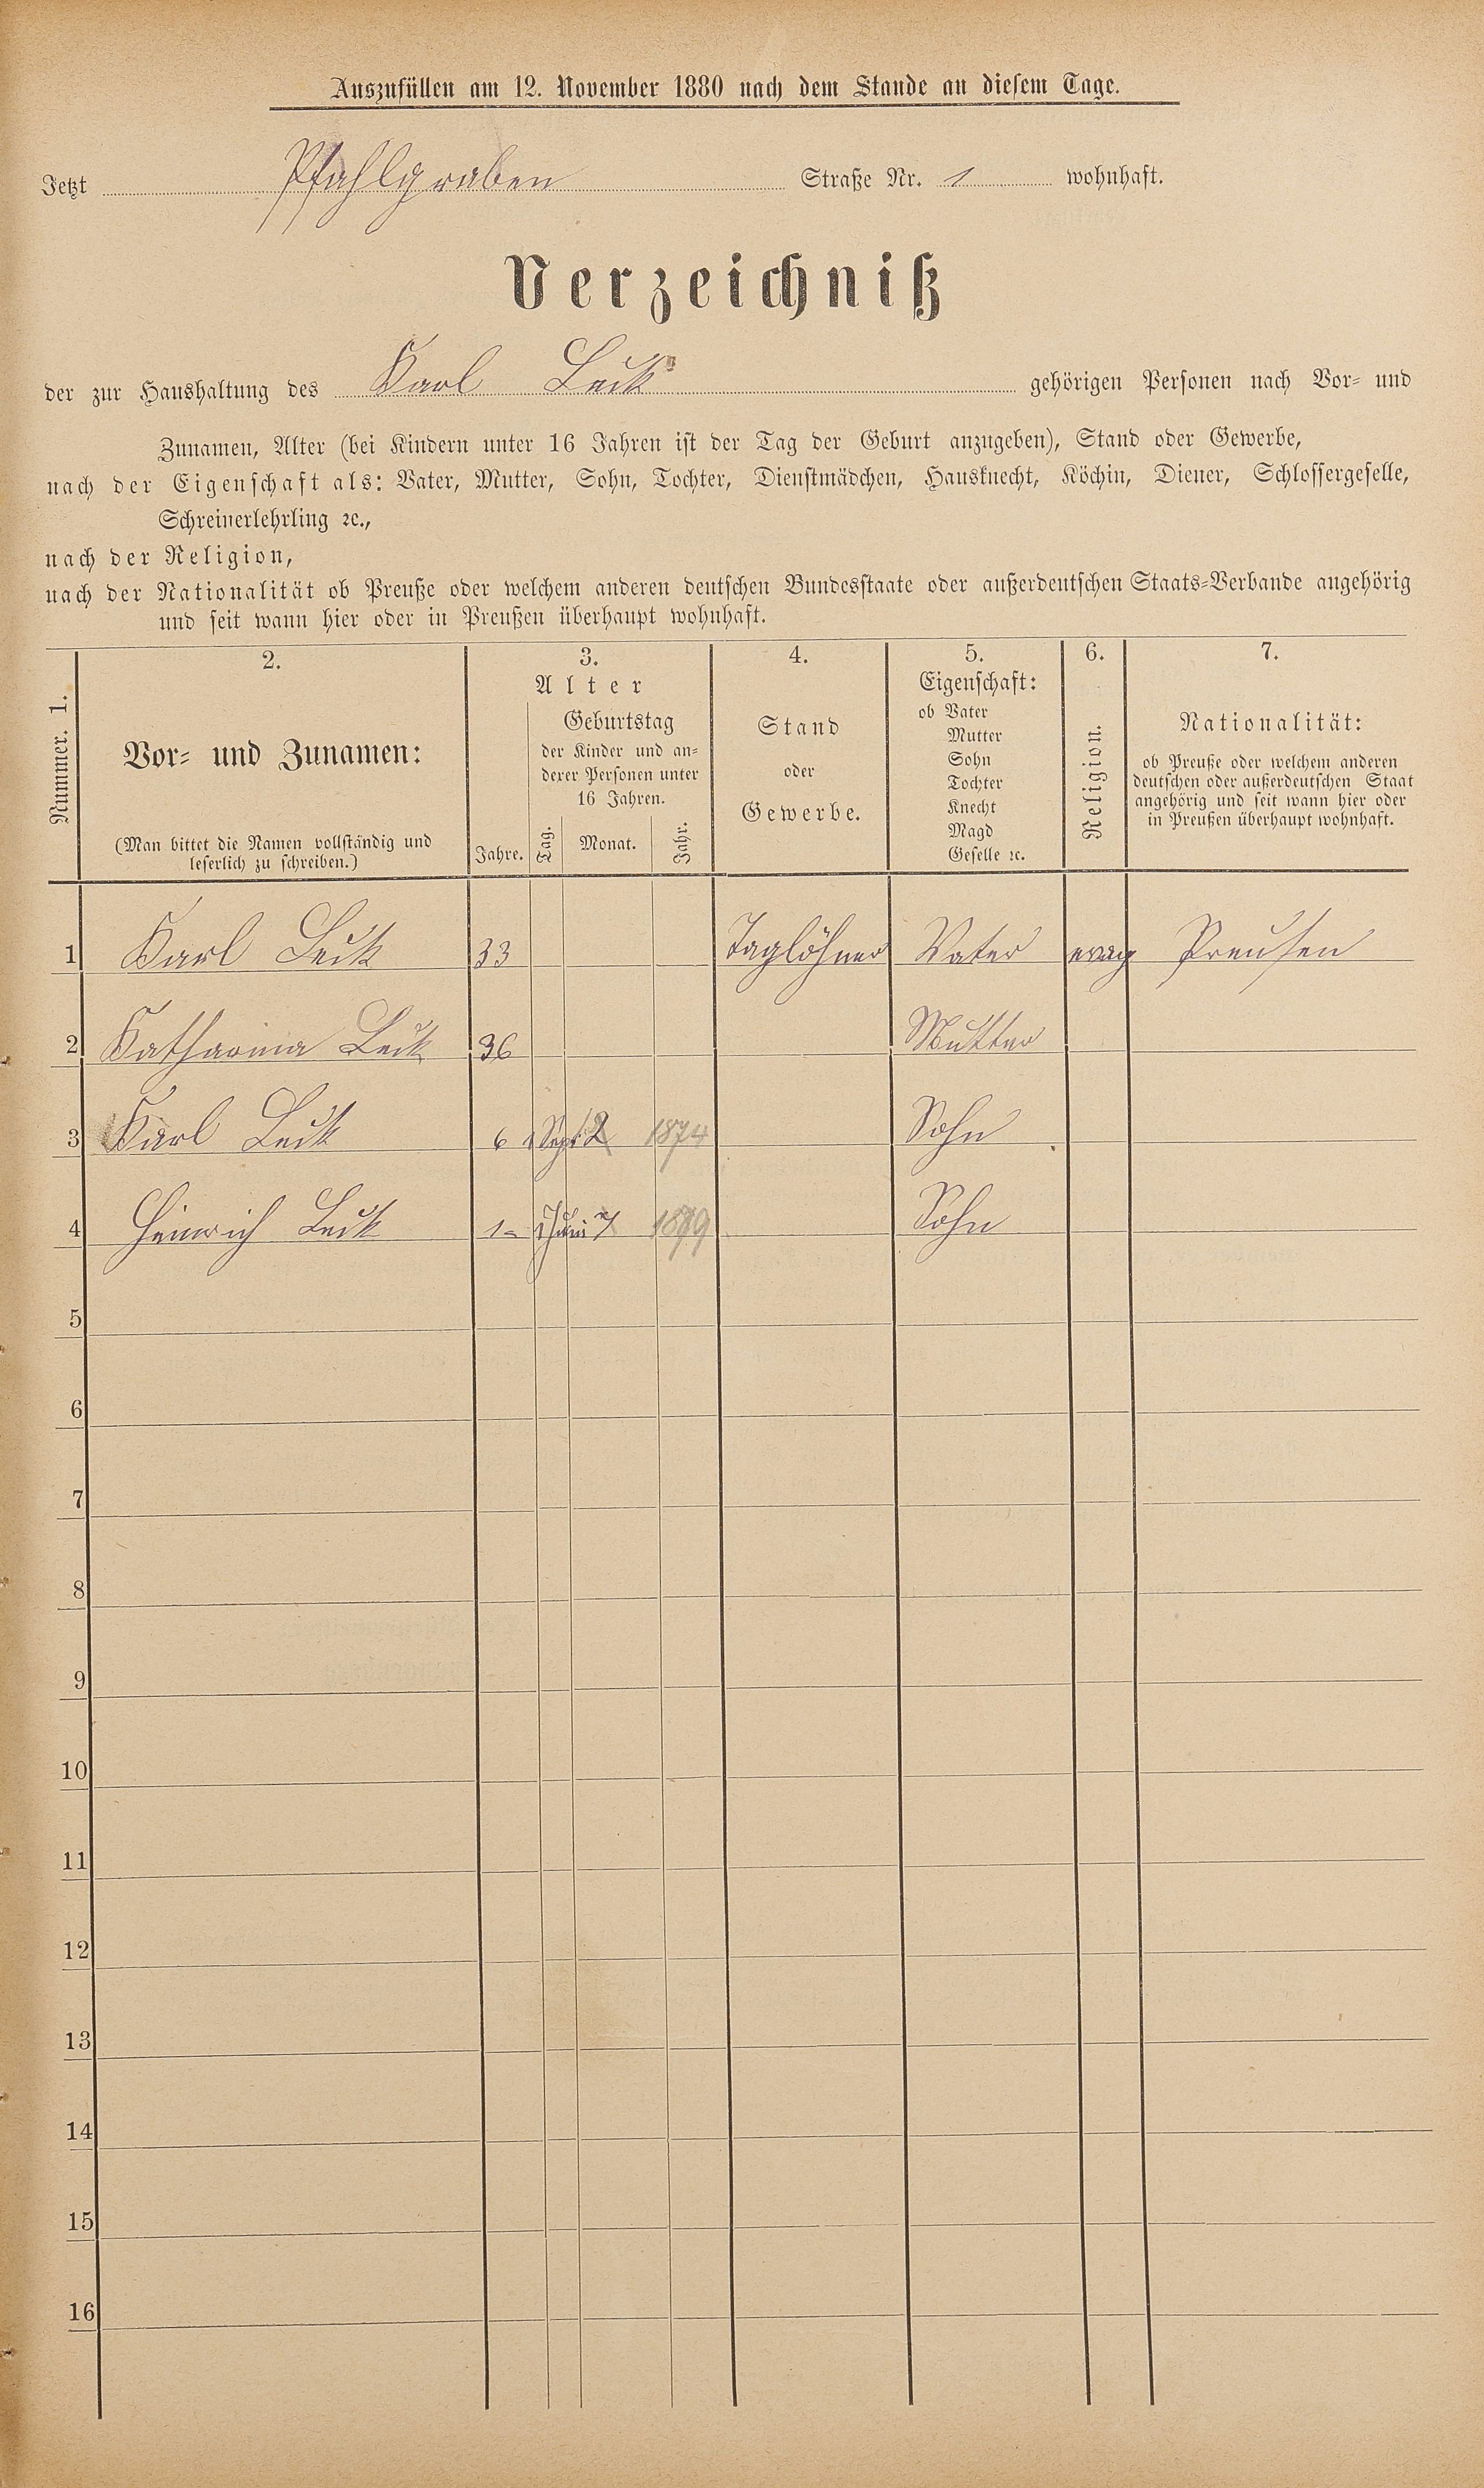 Auszufüllen am 12. November 1880 nach dem Stande an diesem Tage.
Jetzt Pfahlgraben Straße Nr. 1 wohnhaft.
Verzeichniß
der zur Haushaltung des Karl Leck gehörigen Personen nach Vor- und
Zunamen, Alter (bei Kindern unter 16 Jahren ist der Tag der Geburt anzugeben), Stand oder Gewerbe,
nach der Eigenschaft als: Vater, Mutter, Sohn, Tochter, Dienstmädchen, Hausknecht, Köchin, Diener, Schlossergeselle,
Schreinerlehrling ꝛc.,
nach der Religion,
nach der Nationalität ob Preuße oder welchem anderen deutschen Bundesstaate oder außerdeutschen Staats-Verbande angehörig
und seit wann hier oder in Preußen überhaupt wohnhaft.
Nummer. 1.
2.
Vor- und Zunamen:
(Man bittet die Namen vollständig und
leserlich zu schreiben.)
3.
Alter
Jahre.
Geburtstag
der Kinder und an-
derer Personen unter
16 Jahren.
Tag. Monat. Jahr.
4.
Stand
oder
Gewerbe.
5.
Eigenschaft:
ob Vater
Mutter
Sohn
Tochter
Knecht
Magd
Geselle ꝛc.
6.
Religion.
7.
Nationalität:
ob Preuße oder welchem anderen
deutschen oder außerdeutschen Staat
angehörig und seit wann hier oder
in Preußen überhaupt wohnhaft.
1 Karl Leck 33 Taglöhner Vater evag Preusen
2 Katharina Leck 36 Mutter
3 Karl Leck 6 Sept 1874 Sohn
4 Heinrich Leck 1 Juni 1879 Sohn
5
6
7
8
9
10
11
12
13
14
15
16